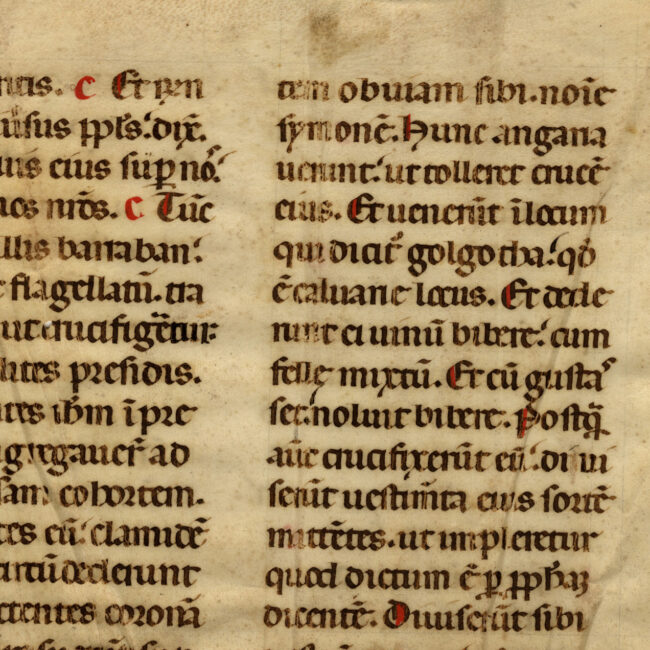 ntis. C Et rn̄
uīsus pp̄ls.' dix̄.
uis eius sup̄ nō.'
nos nr̄os. C Tūc
illis barraban.'
flagellatū. tra
ut crucifigētur
lites presidis.
tes ih̄m ī pre
gregauer̄ ad
sam cohortem.
tes eū.' clamidē
circūdederunt
ctentes coronā
tem obuiam sibi. noīe
symonē. Hunc angaria
uerunt.' ut tolleret crucē
eius. Et uenerūt ī locum
qui dicit᷑ golgotha.' qḋ
ē caluarie locus. Et dede
runt ei uinū bibere.' cum
felle mixtū. Et cū gusta
set. noluit bibere. Postq̄
aūt crucifixerūt eū.' diui
serūt uestim̄ta eius sortē
mittētes. ut impleretur
quod dictum ē ꝑ ꝓph̄aꝫ
dicentē. Diuiserūt sibi